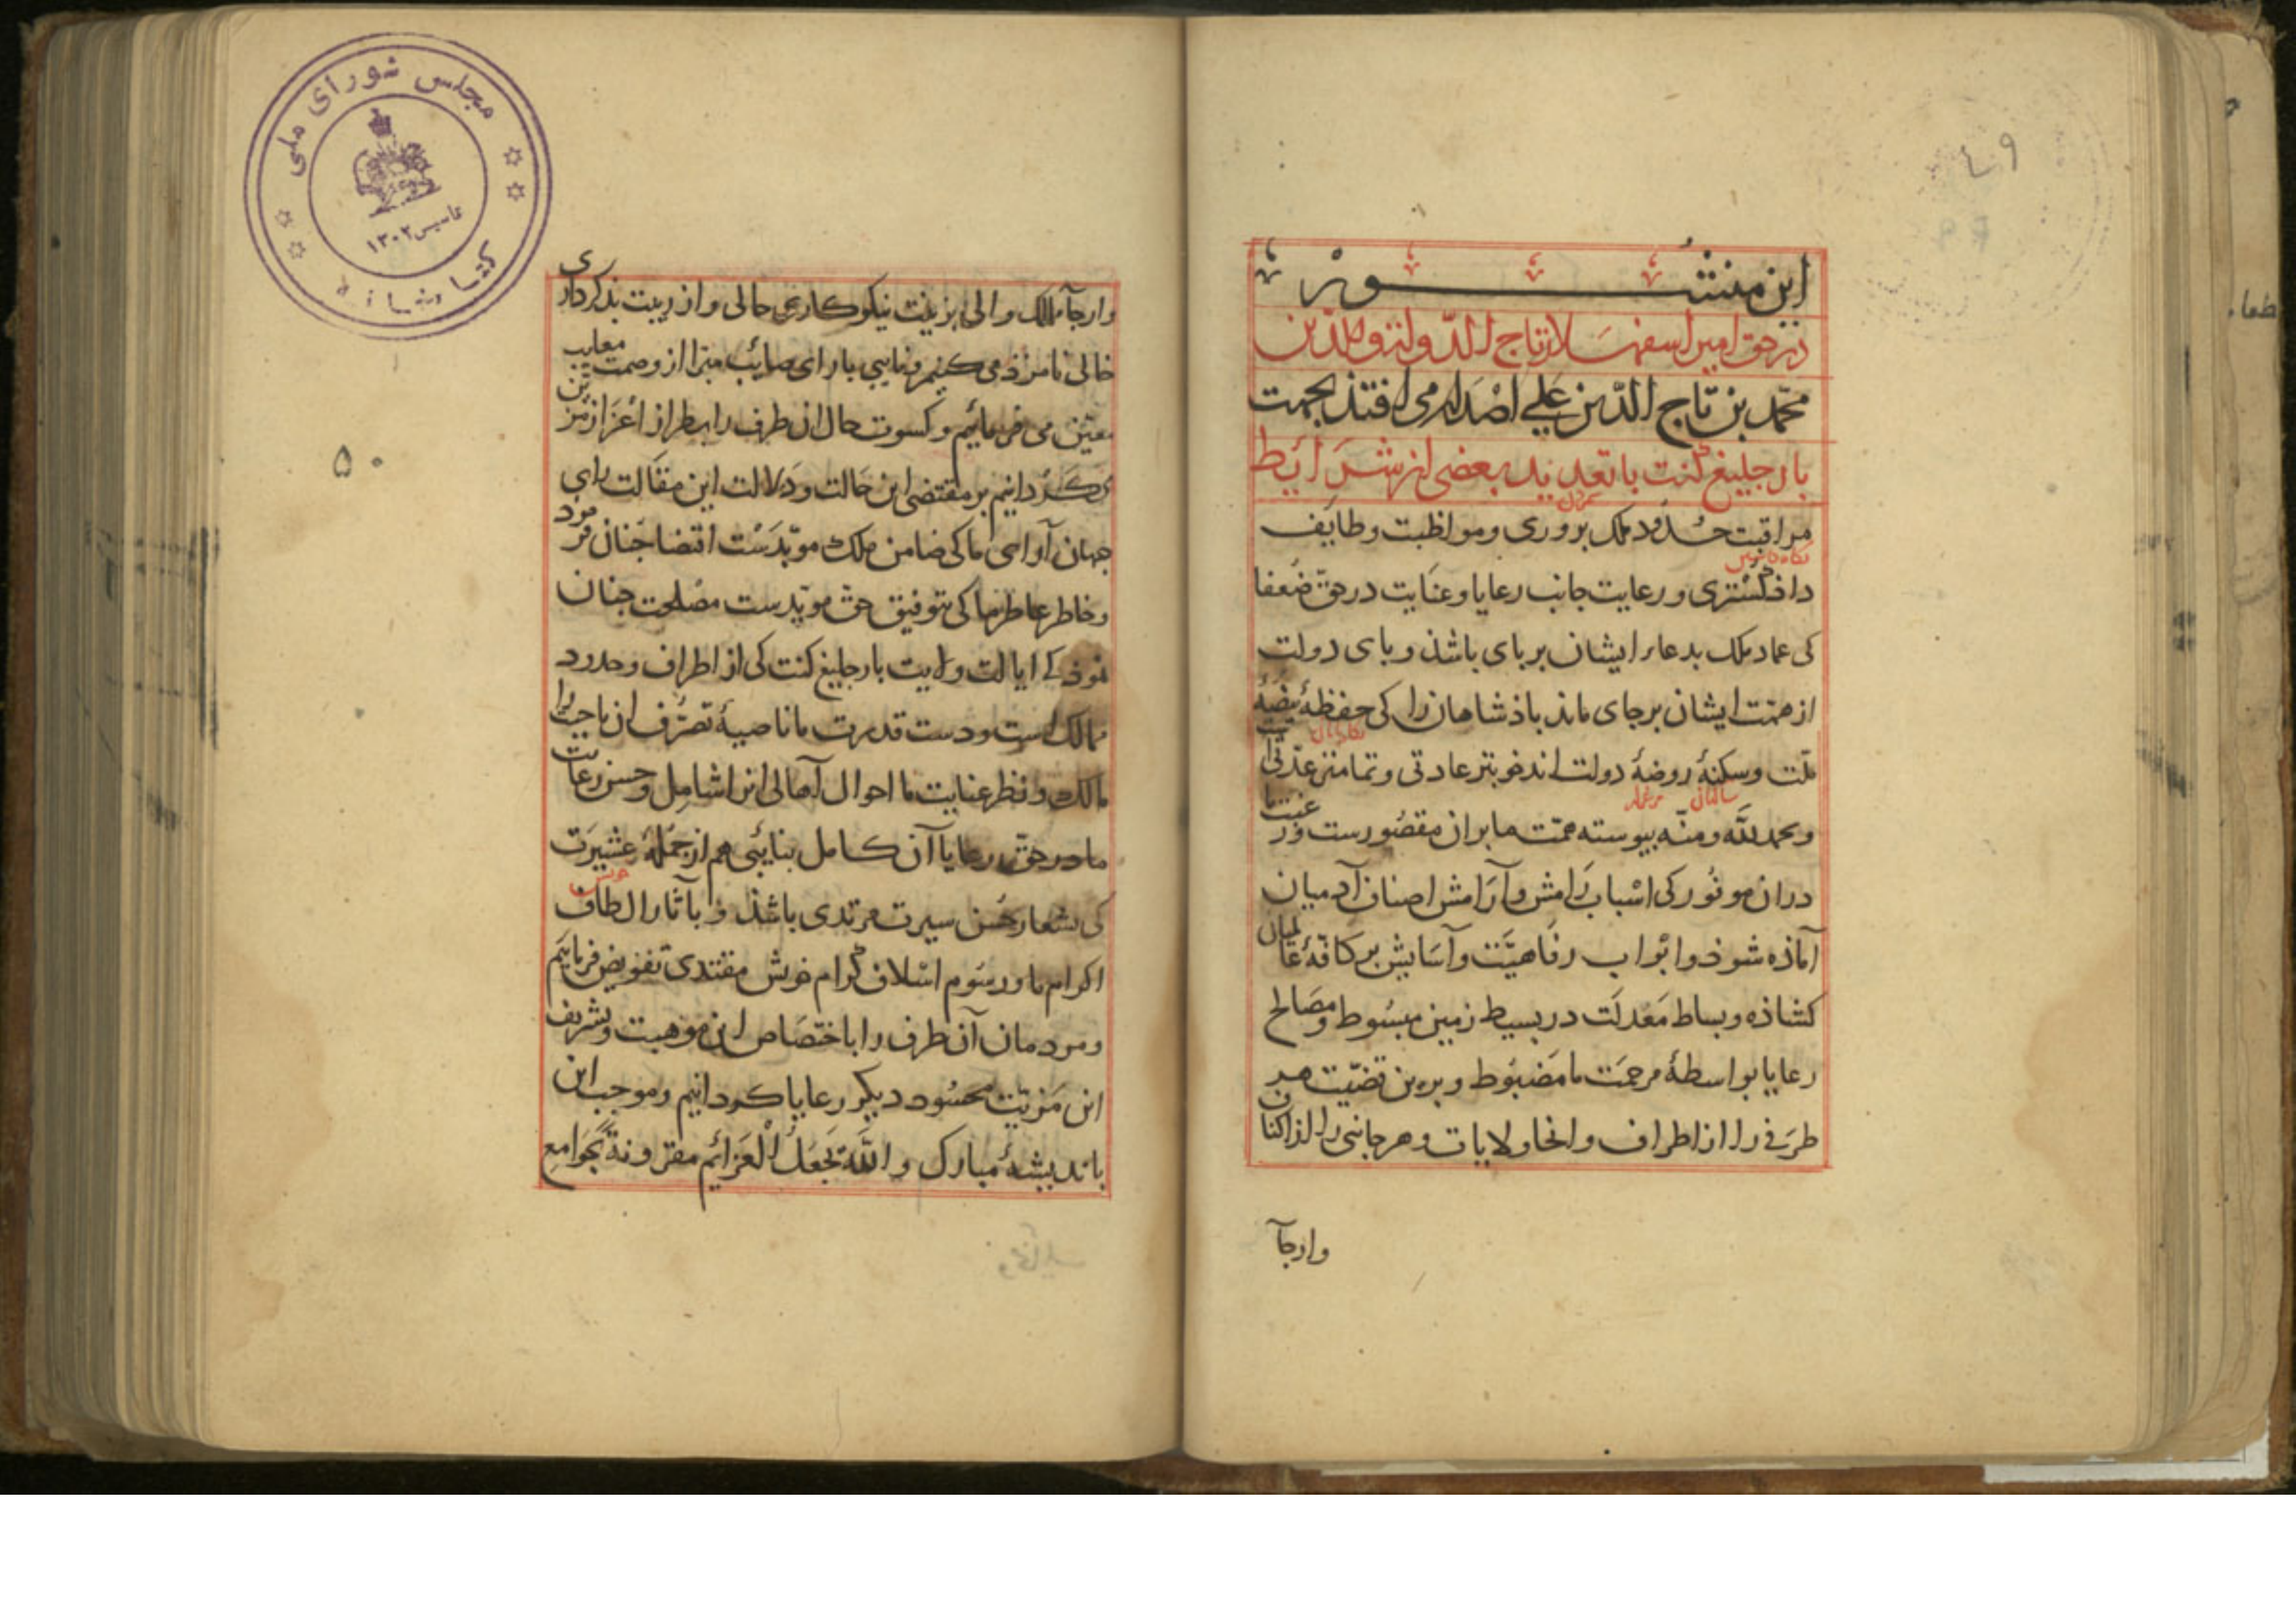 ۴۹
این منشور
در حق امیر اسفهسلار تاج الدولة والدین
محمد بن تاج الدین علی اصدار می افتذ بجهت
بارجلیغ کنت با تعدید بعضی از شرایط
مراقبت حدود ملک پروری و مواظبت وظایف
داذ گستری و رعایت جانب رعایا و عنایت در حق ضعفا
کی عماد ملک بدعاء ایشان بر پای باشذ و پای دولت
از همت ایشان بر جای ماند باذشاهان را کی حفظهٔ بیضهٔ
ملت و سکنهٔ روضهٔ دولت اند خوبتر عادتی و تمامتر عدتی است
و بحمد الله و منه پیوسته همت ما بران مقصورست و رغبت ما
دران موفور کی اسباب رامش و آرامش اصناف آدمیان
آماذه شوذ و ابواب رفاهیت و آسایش بر کافهٔ عالمیان
کشاذه و بساط معدلت در بسیط زمین مبسوط و مصالح
رعایا بواسطهٔ مرحمت ما مضبوط و برین قضیت هر
طرفی را از اطراف و انحا و ولایات و هر جانبی را از اکناف
وارجآ
وارجآ ممالک والی بزینت نیکوکاری حالی و از ریبت بذکرداری
خالی نامزذ می کنیم و نایبی با رای صائب مبرا از وصمت معایب
معین می فرمائیم و کسوت حال ان طرف را بطراز اعزاز مزین
می گردانیم بر مقتضی این حالت و دلالت این مقالت رای
جهان آرای ما کی ضامن ملک موبدست اقتضا چنان فرمود
و خاطر عاطر ما کی بتوفیق حق مویدست مصلحت چنان
نموذ کی ایالت ولایت بارجلیغ کنت کی از اطراف و حدود
ممالک است و دست قدرت ما ناصیهٔ تصرف ان ناحیت را
مالک و نظر عنایت ما احوال آهالی انرا شامل و حسن رعایت
ما در حق رعایا آن کامل بنایبی هم از جملهٔ عشیرت
کی بشعار حسن سیرت مرتدی باشذ و بآثار الطاف
اکرام ما و رسوم اسلاف کرام خویش مقتدی تفویض فرمایم
و مردمان آن طرف را باختصاص این موهبت و تشریف
این مزیت محسود دیگر رعایا گردانیم و موجب این
باندیشهٔ مبارک والله یجعل العزائم مقرونة بجوامع
۵۰
مجلس شورای ملی
کتابخانه
تاسیس ۱۳۰۲